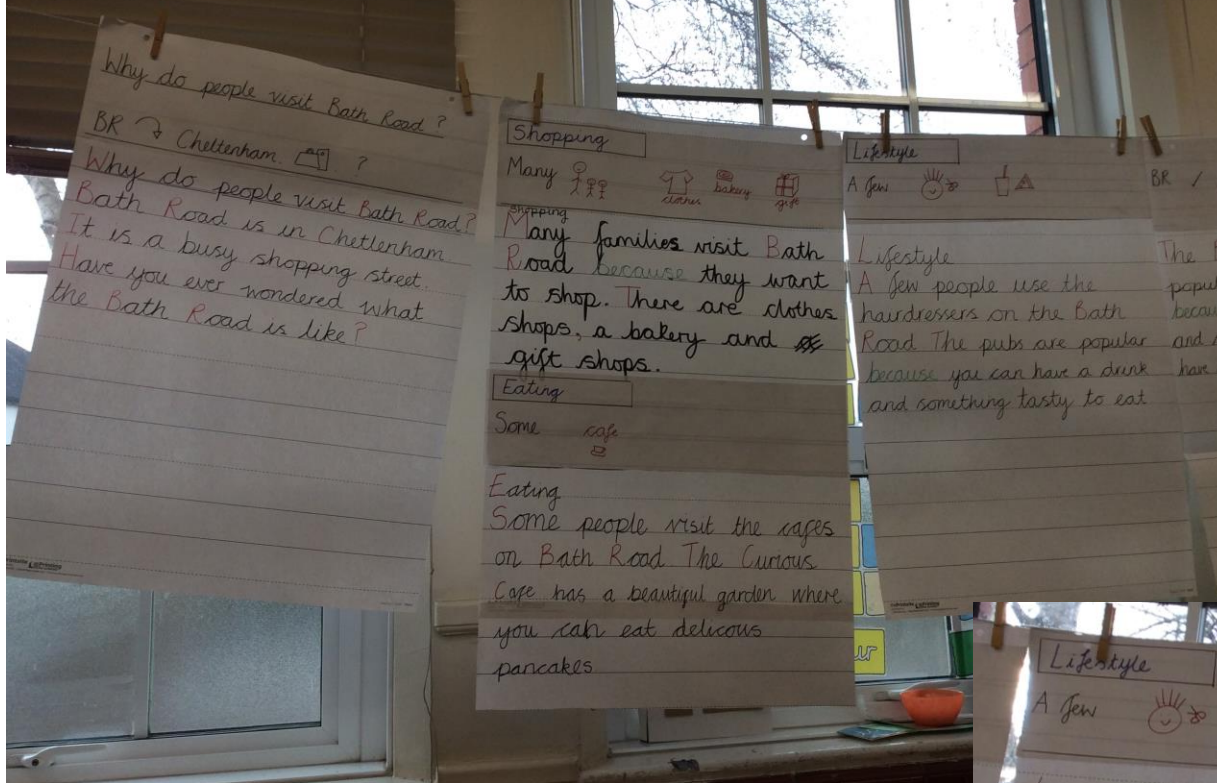 Why do people visit Bath Road ?
BR Cheltenham ?
Why do people visit Bath Road?
Bath Road is in Cheltenham.
It is a busy shopping street.
Have you ever wondered what
the Bath Road is like?
Shopping
Many
clothes bakery gift
Shopping
Many families visit Bath
Road because they want
to shop. There are clothes
shops, a bakery and
gift shops.
Eating
Some cafe
Eating
Some people visit the cafes
on Bath Road The Curious
Cafe has a beautiful garden where
you can eat delicous
pancakes
Lifestyle
A few
Lifestyle
A few people use the
hairdressers on the Bath
Road The pubs are popular
because you can have a drink
and something tasty to eat
BR
The
popul
becau
and
have
ur
Lifestyle
A few